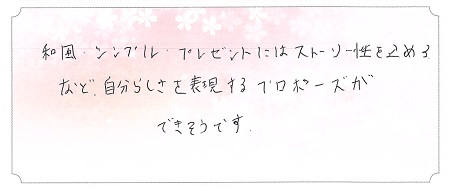 和風・シンプル・プレゼントにはストーリー性を込める
など、自分らしさを表現するプロポーズが
できそうです.